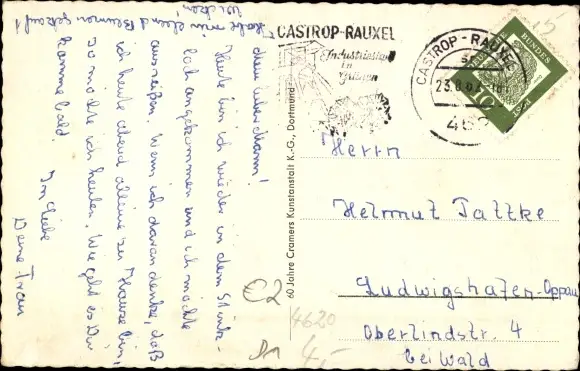 CASTROP-RAUXEL
Industriestadt
im
Grünen
CASTROP-RAUXEL
23.8.6
462
DEUTSCHE
BUNDES
POST
10
60 Jahre Cramers Kunstanstalt K.-G., Dortmund
Mein lieber Mann!
Heute bin ich wieder in dem Stink-
loch angekommen und ich möchte
ausreißen. Wenn ich daran denke, daß
ich heute abend alleine zu Hause bin,
so möchte ich heulen. Wie geht es Dir
komme bald.
In Liebe
Deine Frau
Herrn
Helmut Tattke
Ludwigshafen-Oppau
Oberlindstr. 4
bei Wald
€2
4620
4,-